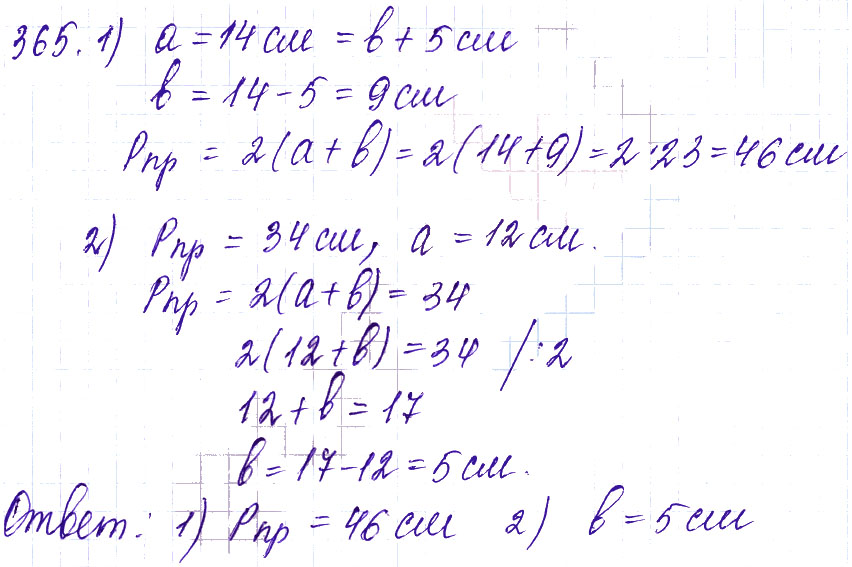 365. 1) a = 14 см = в + 5 см
в = 14 - 5 = 9 см
Pпр = 2(a + в) = 2(14 + 9) = 2 · 23 = 46 см
2) Pпр = 34 см, a = 12 см.
Pпр = 2(a + в) = 34
2(12 + в) = 34 / : 2
12 + в = 17
в = 17 - 12 = 5 см.
Ответ: 1) Pпр = 46 см 2) в = 5 см